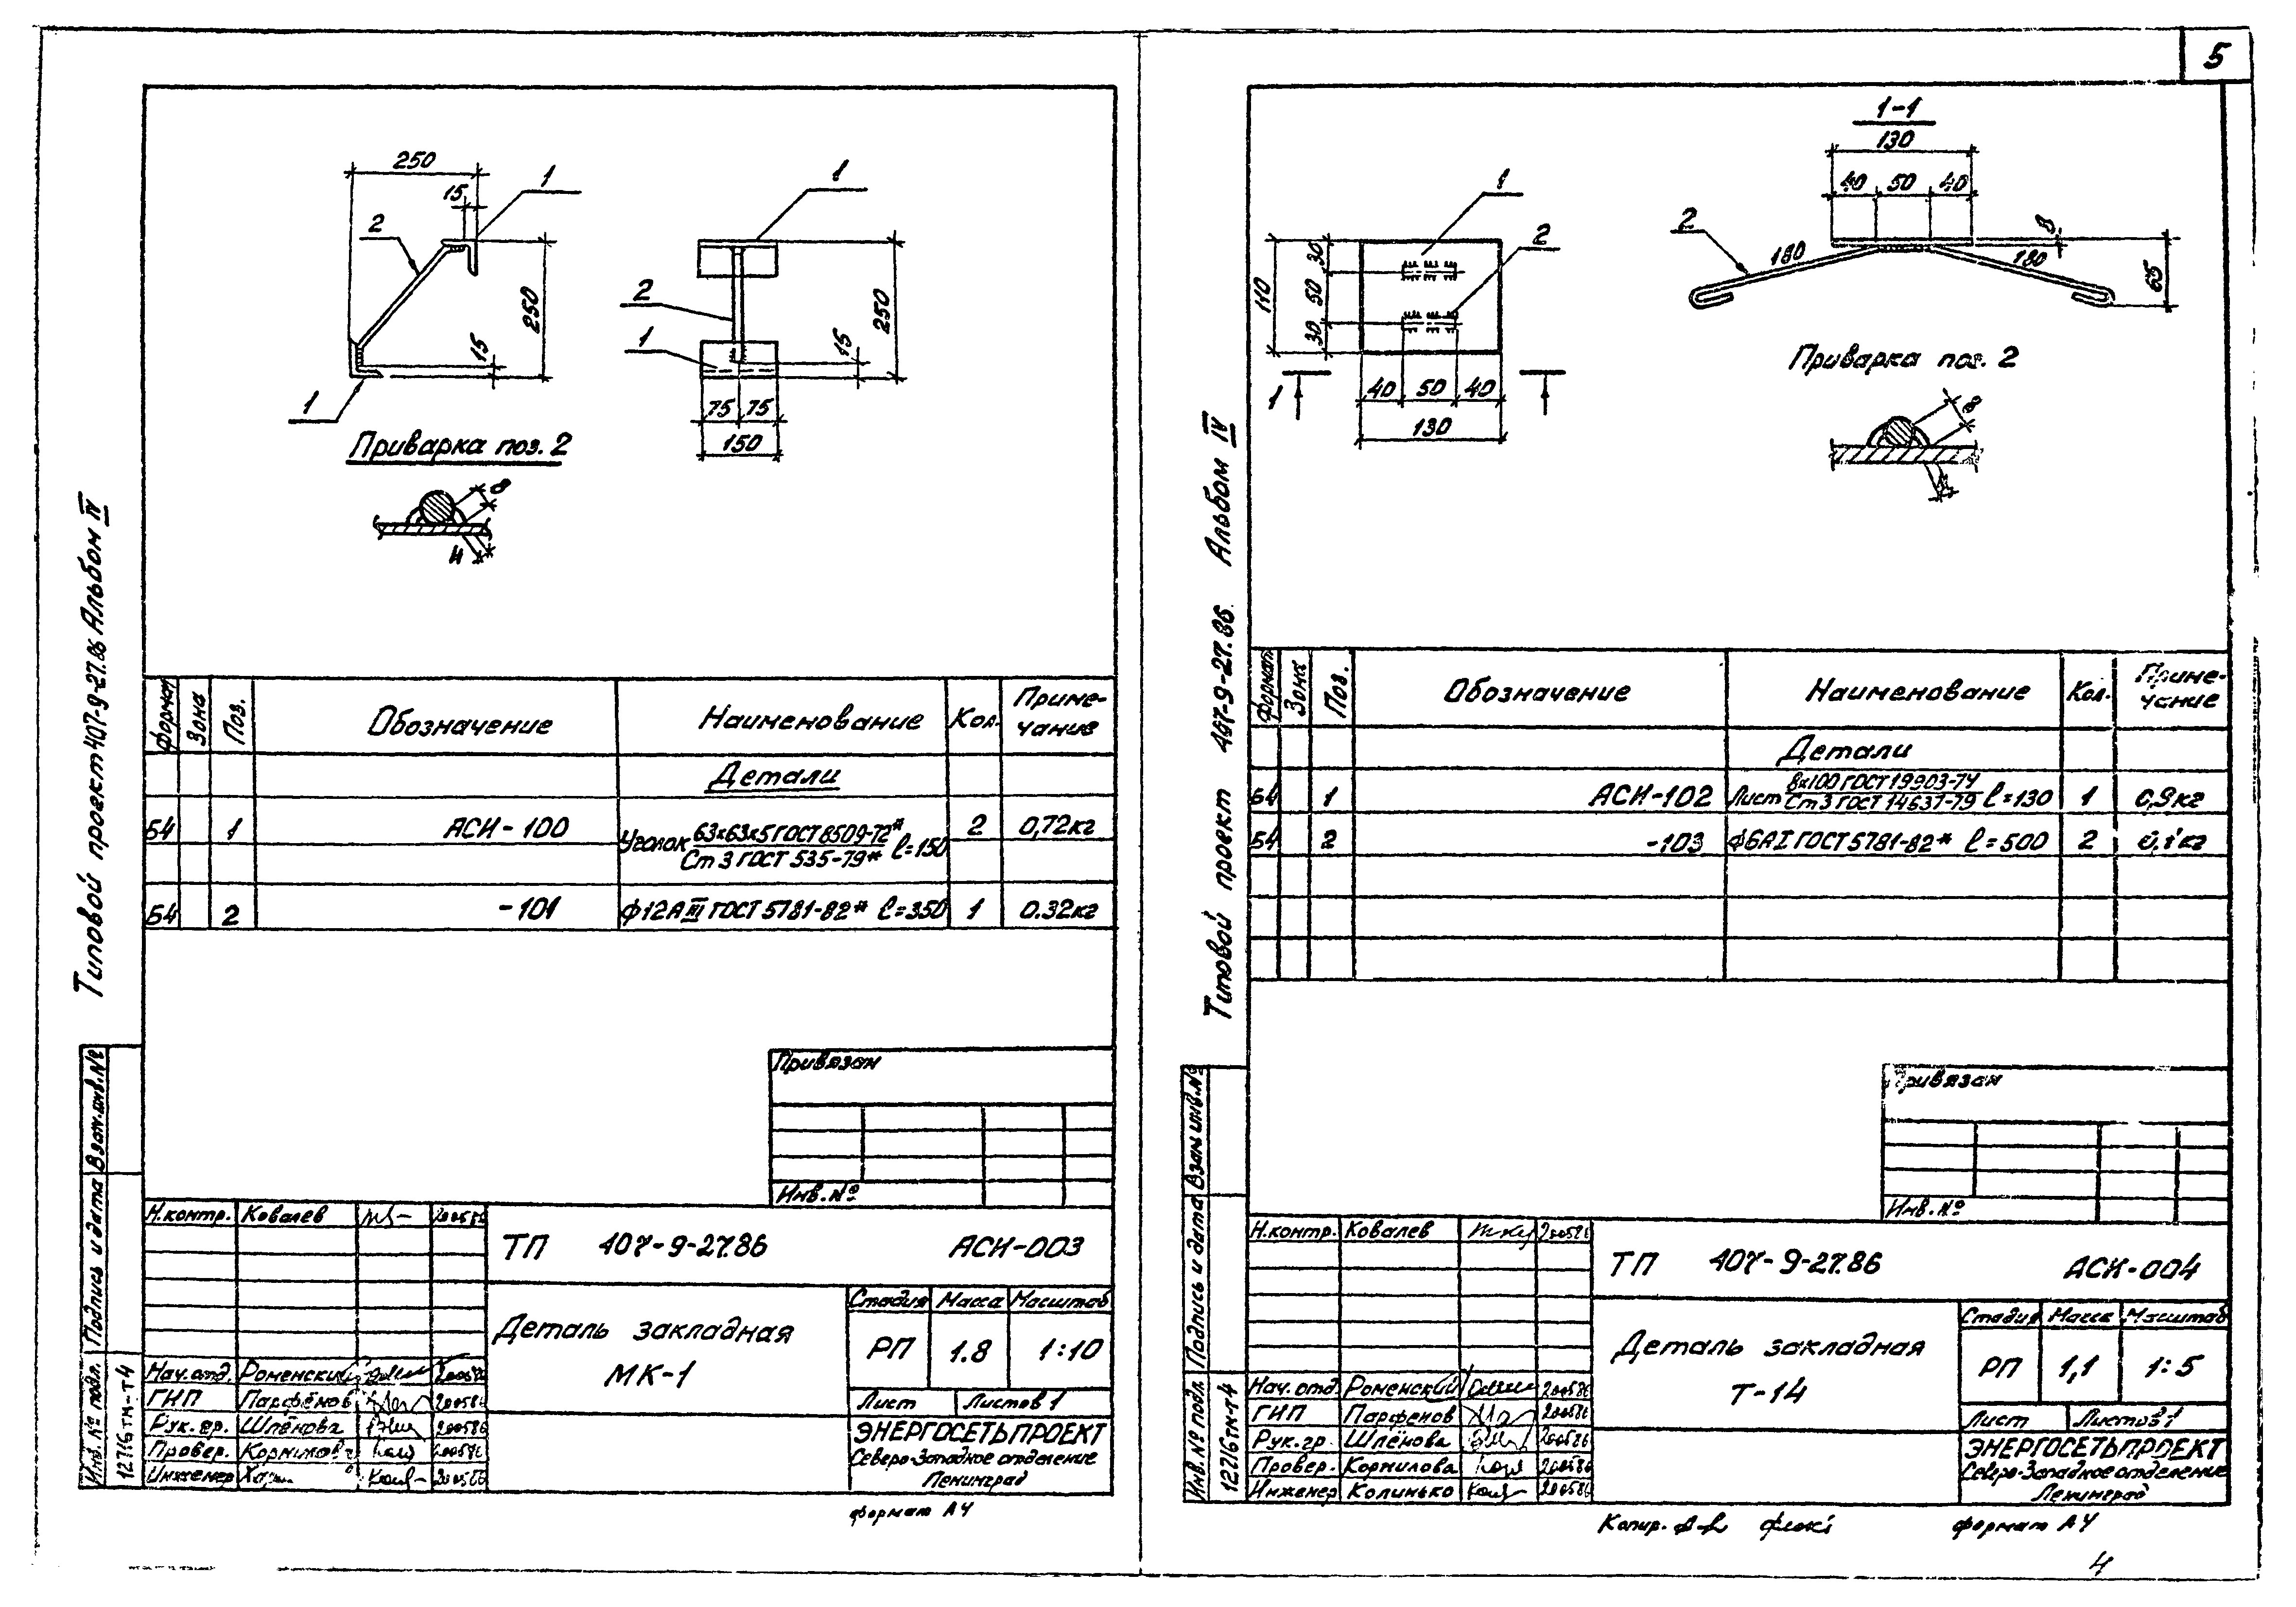 5
250
15
1
2
250
15
1
Приварка поз. 2
8
4
1
2
1
250
15
75 75
150
Типовой проект 407-9-27.86 Альбом IV
Формат Зона Поз. Обозначение Наименование Кол. Приме-
чание
Детали
Б4 1 АСИ-100 Уголок 63х63х5 ГОСТ 8509-72*
Ст 3 ГОСТ 535-79* ℓ=150 2 0,72кг
Б4 2 -101 ф12АIII ГОСТ 5781-82* ℓ=350 1 0.32кг
Привязан
Инв.№
Взам.инв.№
Подпись и дата
Инв.№ подл.
12716тм-т4
Н.контр. Ковалев 200586
Нач.отд. Роменский
ГИП Парфёнов 200586
Рук.гр. Шлёнова 200586
Провер. Корнилова 200586
Инженер 200586
ТП 407-9-27.86 АСИ-003
Деталь закладная
МК-1
Стадия Масса Масштаб
РП 1.8 1:10
Лист Листов 1
ЭНЕРГОСЕТЬПРОЕКТ
Северо-Западное отделение
Ленинград
формат А4
1-1
130
40 50 40
1
2
30
50
30
110
40 50 40
130
1
2
180
180
8
65
Приварка поз. 2
8
4
Типовой проект 407-9-27.86 Альбом IV
Формат Зона Поз. Обозначение Наименование Кол. Приме-
чание
Детали
Б4 1 АСИ-102 Лист 8х100 ГОСТ 19903-74
Ст 3 ГОСТ 14637-79 ℓ=130 1 0,9кг
Б4 2 -103 ф6АI ГОСТ 5781-82* ℓ=500 2 0,1кг
Привязан
Инв.№
Взам инв.№
Подпись и дата
Инв.№ подл.
12716тм-т4
Н.контр. Ковалев 200586
Нач.отд Роменский 200586
ГИП Парфенов 200586
Рук.гр. Шлёнова 200586
Провер. Корнилова 200586
Инженер Колинько 200586
ТП 407-9-27.86 АСИ-004
Деталь закладная
Т-14
Стадия Масса Масштаб
РП 1,1 1:5
Лист Листов 1
ЭНЕРГОСЕТЬПРОЕКТ
Северо-Западное отделение
Ленинград
Копир. формат А4
4